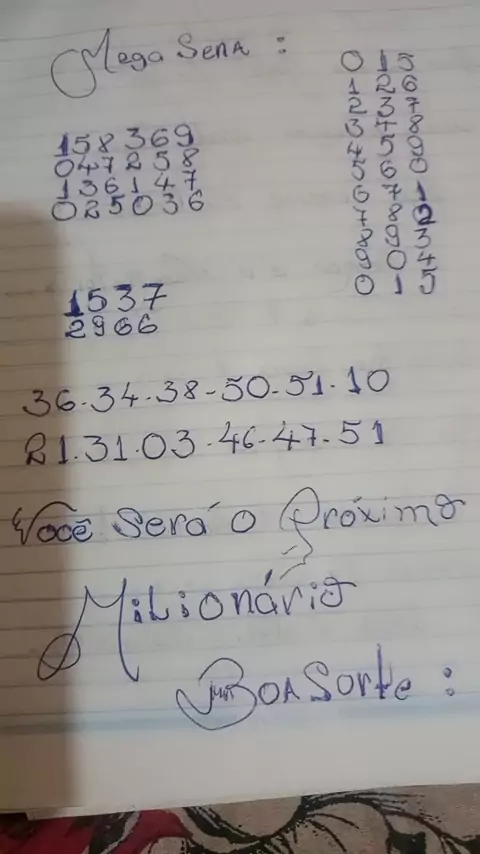 Mega Sena :
158 369
047 258
136 147
025 036
1537
2966
0 1 5
1 2 6
2 3 7
3 7 8
4 5 9
5 6 0
6 7 1
7 8 2
8 9 3
9 0 4
0 1 5
36-34-38-50-51-10
21.31.03-46-47-51
Você Será o Próximo
Milionário
BOA Sorte :